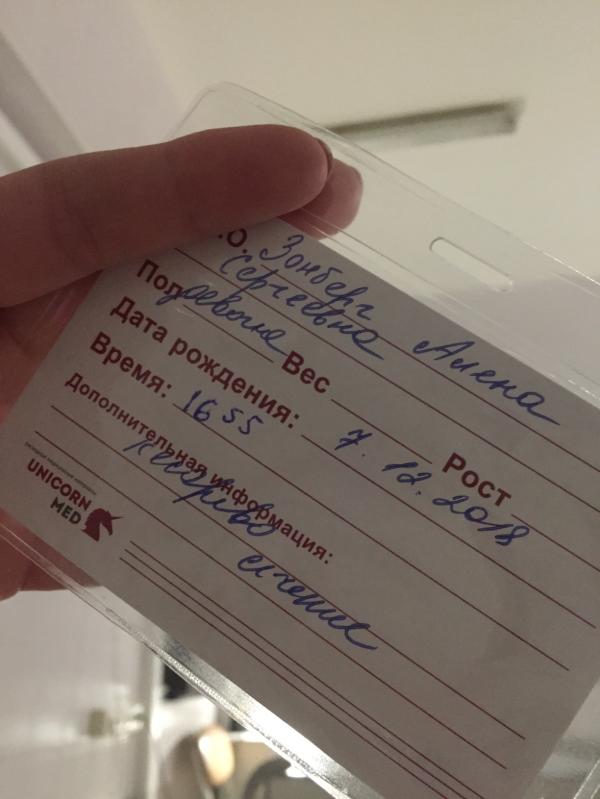 .О. Зонберг Алена
Сергеевна
Пол девочка Вес Рост
Дата рождения: 7.12.2018
Время: 16 55
Дополнительная информация:
кесарево
сечение
UNICORN
MED